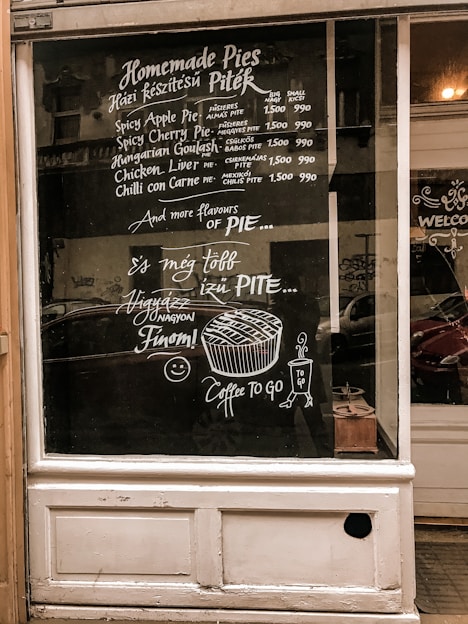 Homemade Pies
Házi készítésű Piték
BIG SMALL
NAGY KICSI
Spicy Apple Pie - FŰSZERES ALMÁS PITE 1.500 990
Spicy Cherry Pie - FŰSZERES MEGGYES PITE 1.500 990
Hungarian Goulash PIE - CSÜLKÖS BABOS PITE 1.500 990
Chicken Liver PIE - CSIRKEMÁJAS PITE 1,500 990
Chilli con Carne PIE - MEXIKÓI CHILIS PITE 1.500 990
And more flavours
OF PIE...
És még több
ízű PITE...
Vigyázz
NAGYON
Finom!
Coffee TO GO
TO GO
WELCO